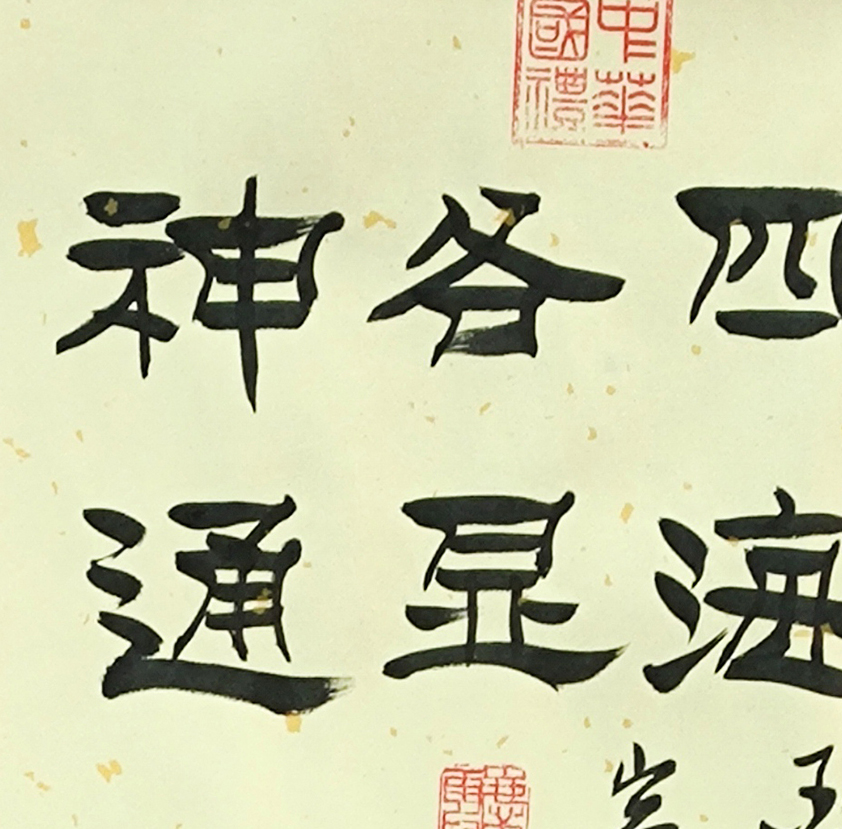 中華
國禮
四海
各显
神通